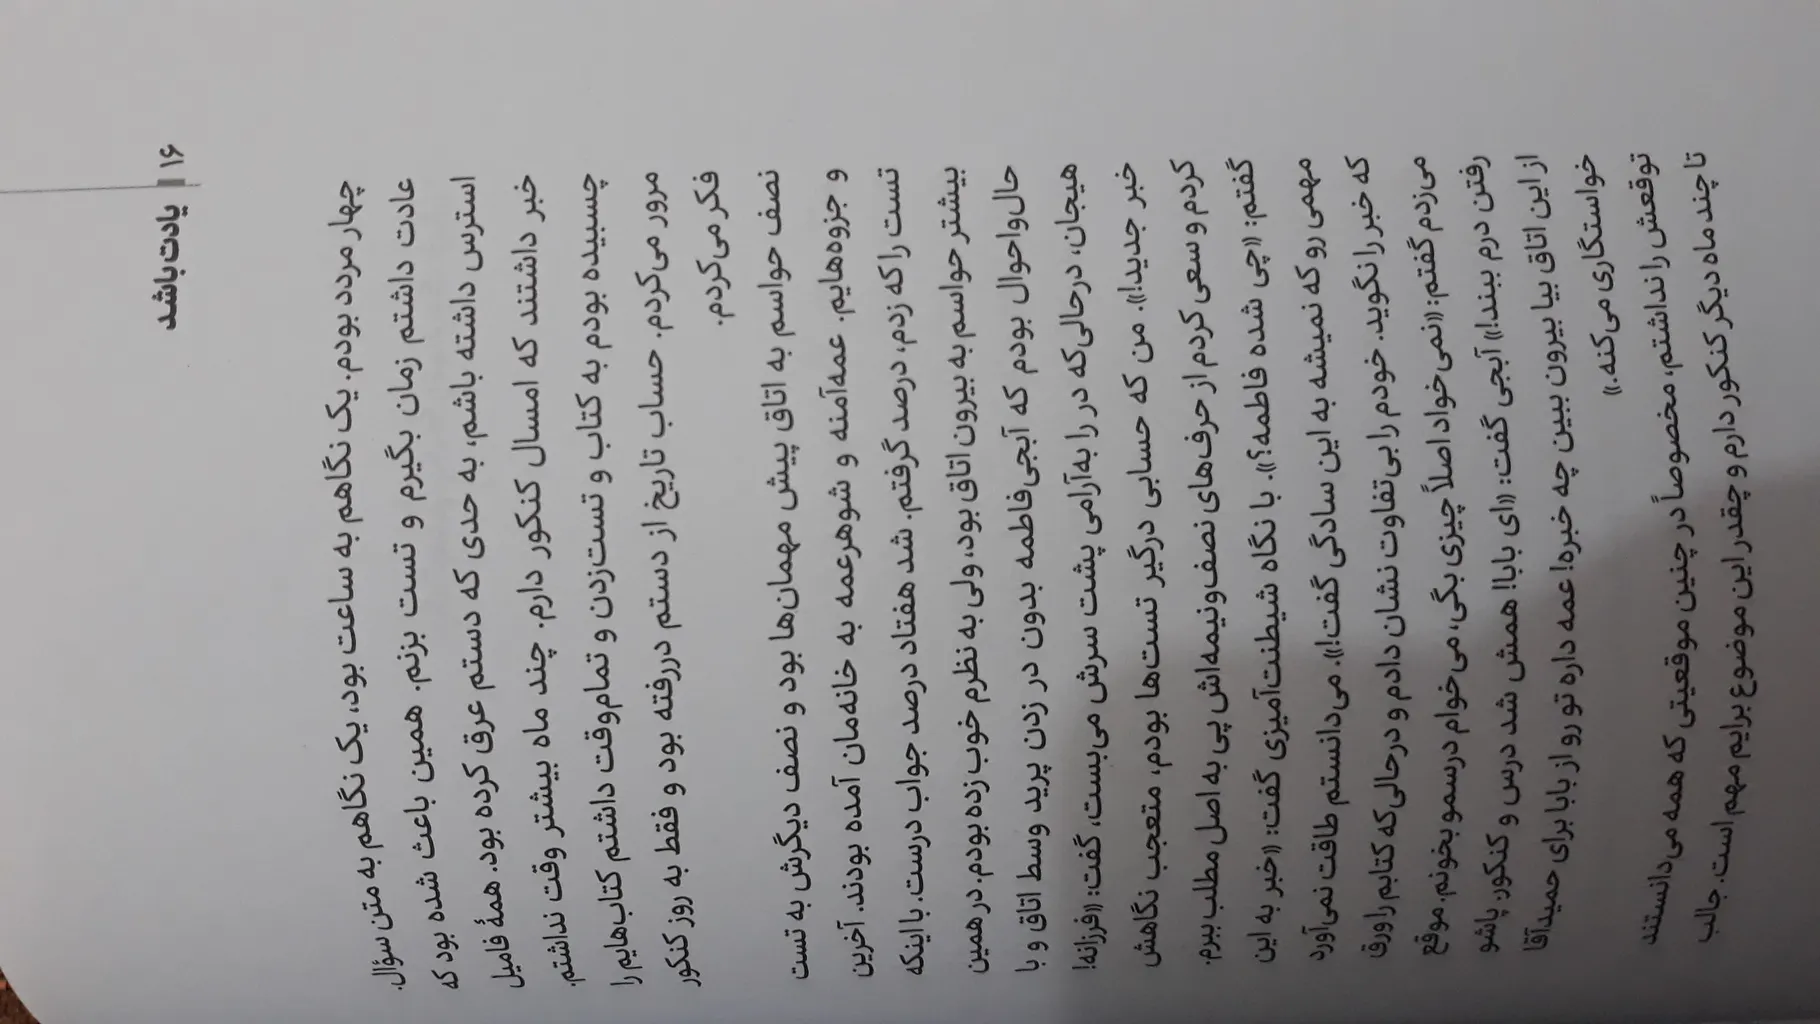 ۱۶ | یادت باشد
چهار مردد بودم. یک نگاهم به ساعت بود، یک نگاهم به متن سؤال.
عادت داشتم زمان بگیرم و تست بزنم. همین باعث شده بود که
استرس داشته باشم، به حدی که دستم عرق کرده بود. همهٔ فامیل
خبر داشتند که امسال کنکور دارم. چند ماه بیشتر وقت نداشتم.
چسبیده بودم به کتاب و تست‌زدن و تمام‌وقت داشتم کتاب‌هایم را
مرور می‌کردم. حساب تاریخ از دستم دررفته بود و فقط به روز کنکور
فکر می‌کردم.
نصف حواسم به اتاق پیش مهمان‌ها بود و نصف دیگرش به تست
و جزوه‌هایم. عمه‌آمنه و شوهرعمه به خانه‌مان آمده بودند. آخرین
تست را که زدم، درصد گرفتم. شد هفتاد درصد جواب درست. با اینکه
بیشتر حواسم به بیرون اتاق بود، ولی به نظرم خوب زده بودم. در همین
حال‌واحوال بودم که آبجی‌فاطمه بدون در زدن پرید وسط اتاق و با
هیجان، درحالی‌که در را به‌آرامی پشت سرش می‌بست، گفت: «فرزانه!
خبر جدید!». من که حسابی درگیر تست‌ها بودم، متعجب نگاهش
کردم و سعی کردم از حرف‌های نصف‌ونیمه‌اش پی به اصل مطلب ببرم.
گفتم: «چی شده فاطمه؟». با نگاه شیطنت‌آمیزی گفت: «خبر به این
مهمی رو که نمیشه به این سادگی گفت!». می‌دانستم طاقت نمی‌آورد
که خبر را نگوید. خودم را بی‌تفاوت نشان دادم و درحالی‌که کتابم را ورق
می‌زدم گفتم: «نمی‌خواد اصلاً چیزی بگی، می‌خوام درسمو بخونم. موقع
رفتن درم ببند!» آبجی گفت: «ای بابا! همش شد درس و کنکور. پاشو
از این اتاق بیا بیرون ببین چه خبره! عمه داره تو رو از بابا برای حمیدآقا
خواستگاری می‌کنه.»
توقعش را نداشتم، مخصوصاً در چنین موقعیتی که همه می‌دانستند
تا چند ماه دیگر کنکور دارم و چقدر این موضوع برایم مهم است. جالب